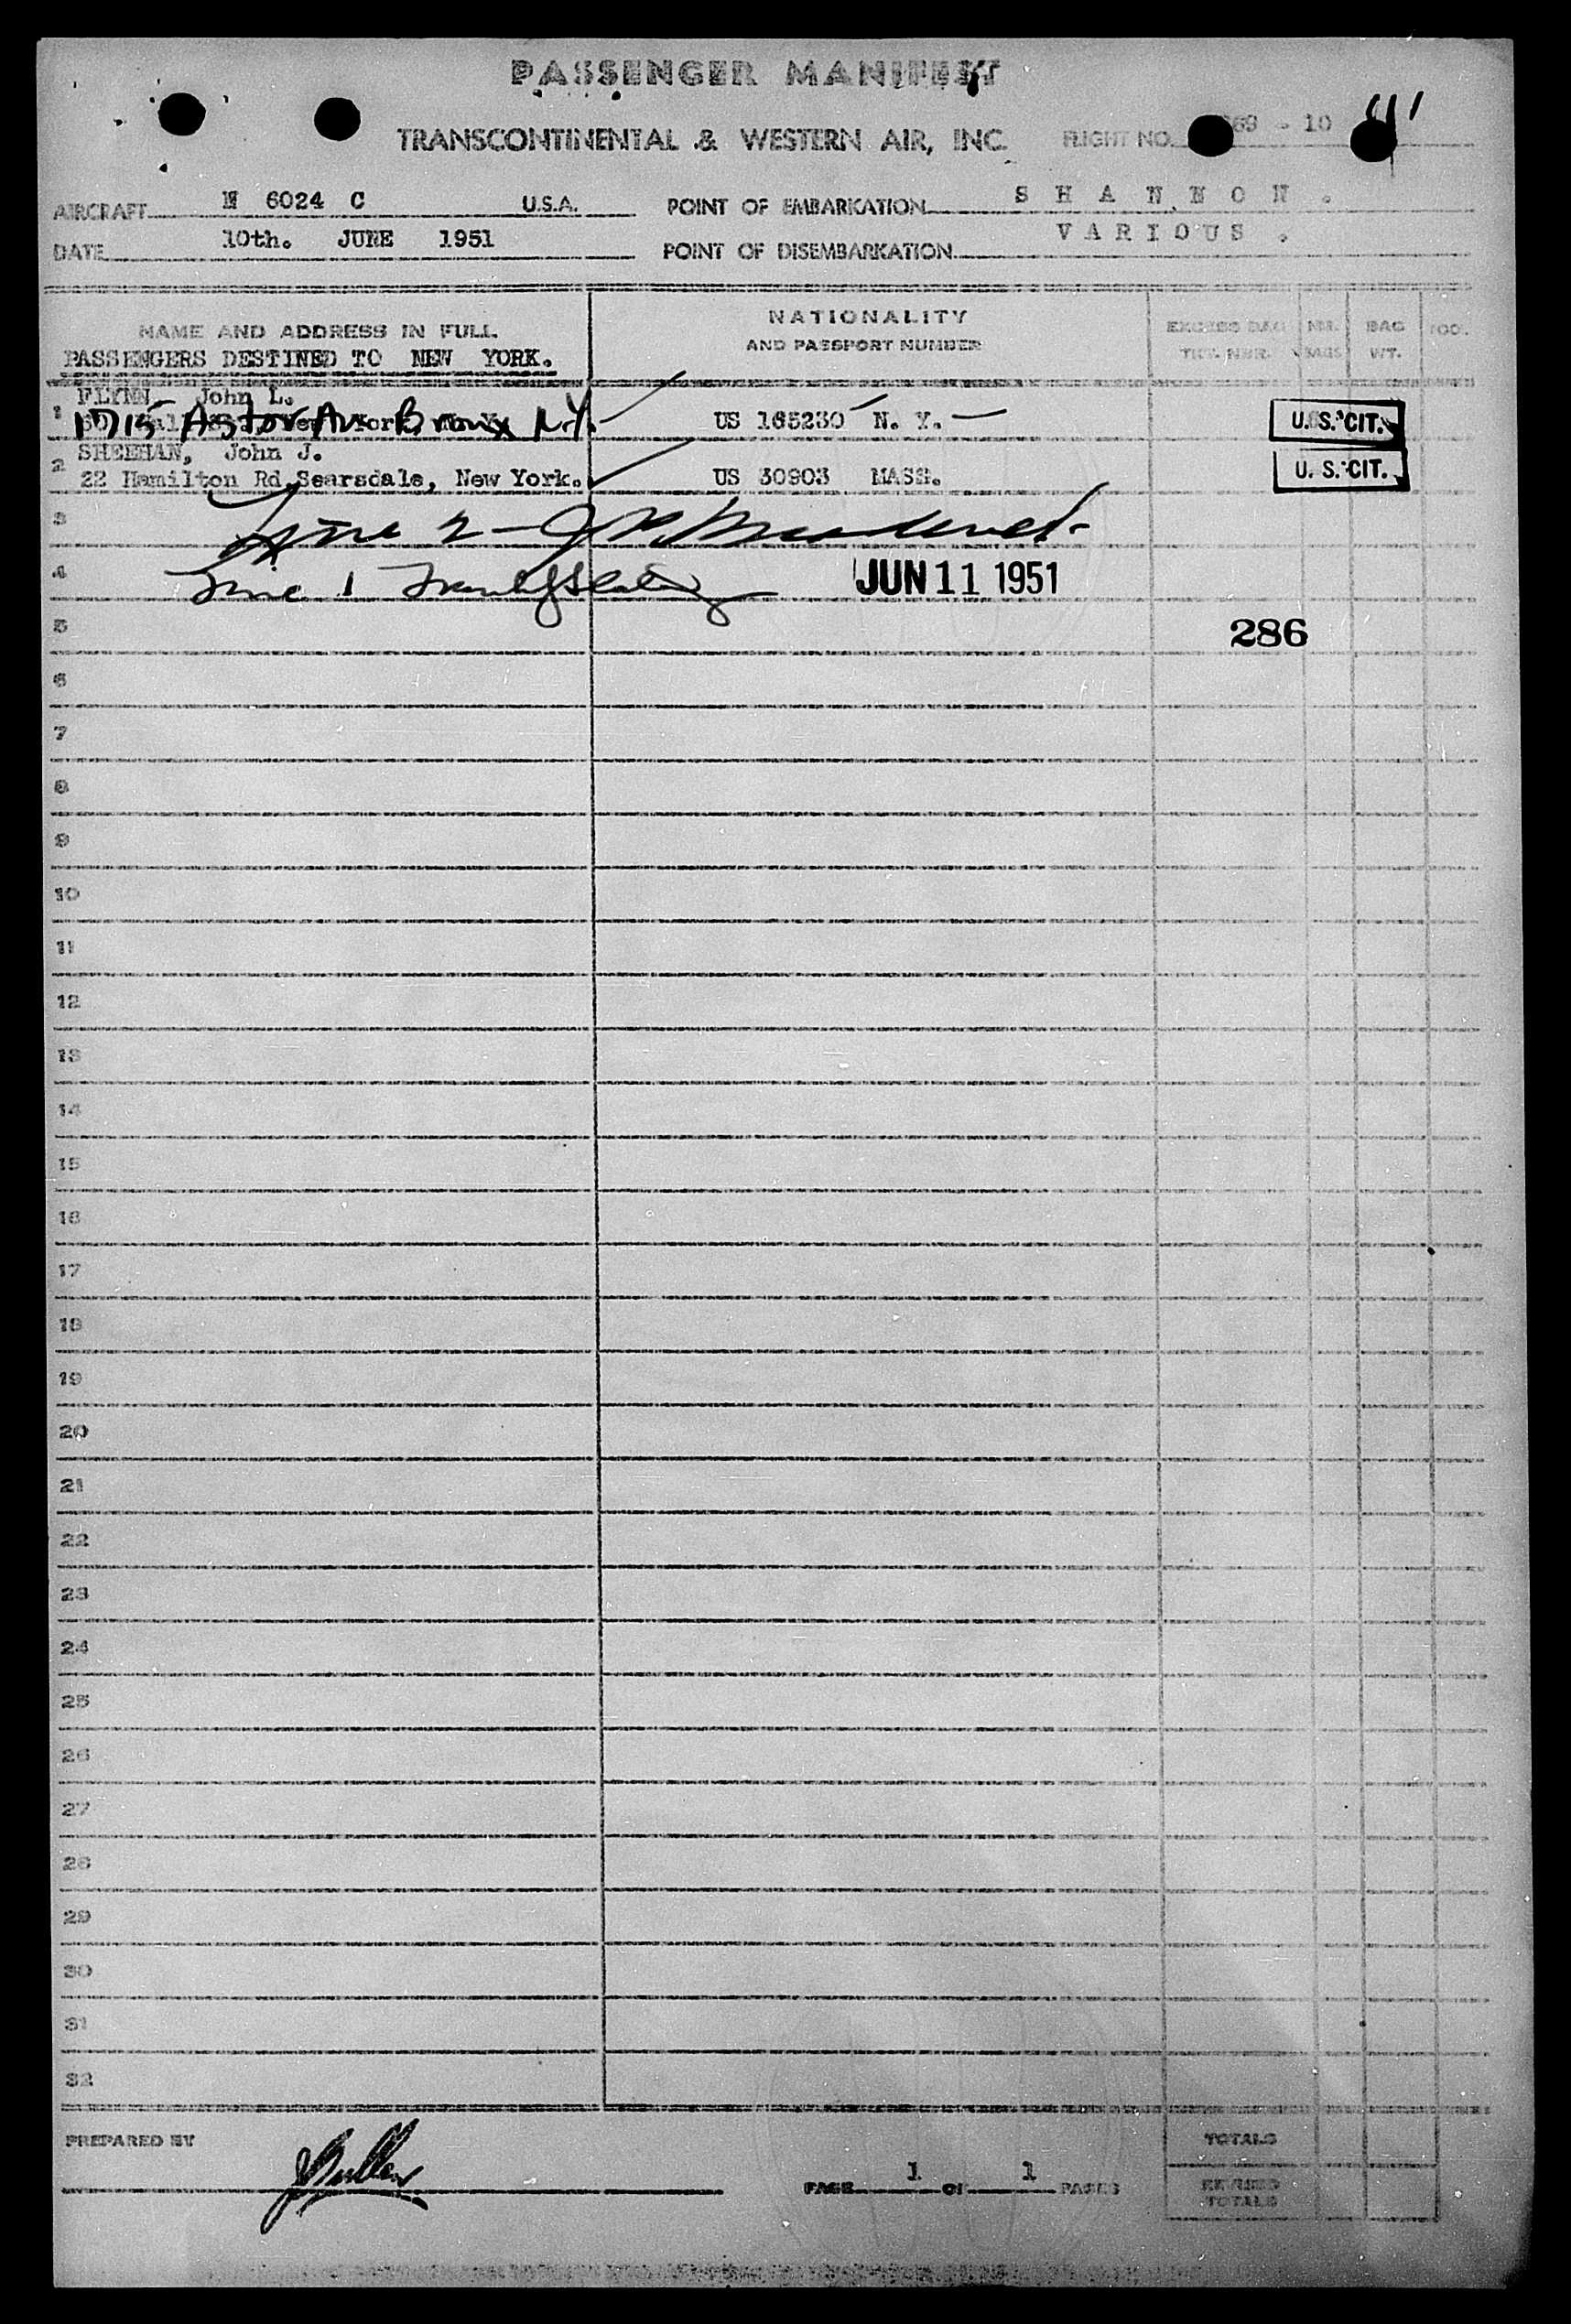 PASSENGER MANIFEST
TRANSCONTINENTAL & WESTERN AIR, INC. FLIGHT NO. 69 - 10
AIRCRAFT N 6024 C U.S.A. POINT OF EMBARKATION S H A N N O N .
DATE 10th. JUNE 1951 POINT OF DISEMBARKATION V A R I O U S .
NAME AND ADDRESS IN FULL NATIONALITY AND PASSPORT NUMBER EXCESS BAG TKT. NBR. NBR. BAGS BAG WT.
PASSENGERS DESTINED TO NEW YORK.
FLYNN, John L.
1 1715 Astor Av Bronx N.Y. US 165230 N. Y. U.S. CIT.
SHEEHAN, John J.
2 22 Hamilton Rd, Searsdale, New York. US 30903 MASS. U. S. CIT.
3 Line 2 -
4 Line 1 JUN 11 1951
5 286
6
7
8
9
10
11
12
13
14
15
16
17
18
19
20
21
22
23
24
25
26
27
28
29
30
31
32
PREPARED BY PAGE 1 OF 1 PAGES TOTALS
REVISED TOTALS